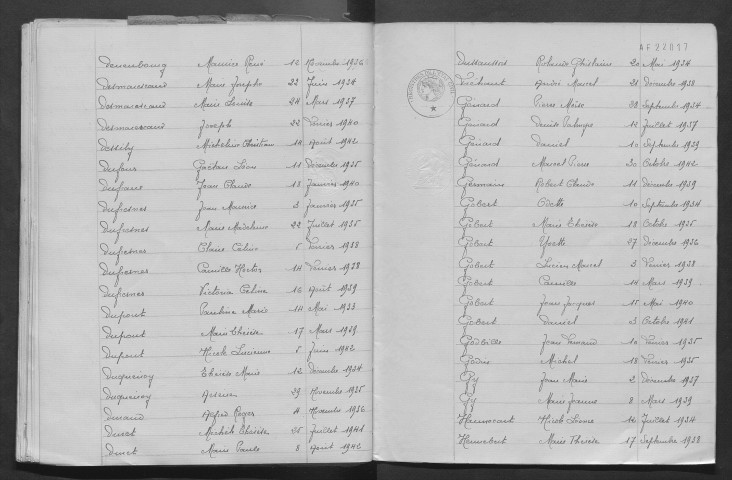 Maurice René 12 Novembre 1936
Desmarescaud Marie Josephe 23 Juin 1934
Desmarescaud Marie Louise 24 Mars 1937
Desmarescaud Joseph 22 Février 1940
14 Août 1942
Dufour Gaëtan Léon 11 Décembre 1935
Jean Claude 18 Janvier 1940
Dufresnes Jean Maurice 3 Janvier 1935
Dufresnes Marie Madeleine 22 Juillet 1935
Dufresnes Claire Céline 5 Février 1938
Dufresnes Camille 14 Février 1938
Dufresnes Victoria Céline 16 Août 1939
Dupont Pauline Marie 14 Mai 1933
Dupont Marie Thérèse 17 Mars 1939
Dupont Nicole Lucienne 5 Juin 1942
Duquesnoy Thérèse Marie 12 Décembre 1934
Duquesnoy 29 Novembre 1935
Durand Alfred Roger 4 Novembre 1936
Duret Michèle Thérèse 25 Juillet 1941
Duret Marie Paule 8 Août 1942
AF 22017
Dussaussois Rolande Ghislaine 20 Mai 1934
André Marcel 21 Décembre 1938
Génard Pierre 28 Septembre 1934
Génard Denise 12 Juillet 1937
Génard Daniel 10 Septembre 1939
Génard Marcel Pierre 30 Octobre 1942
Germaine Robert Claude 11 Décembre 1939
Gobert Odette 10 Septembre 1934
Gobert Marie Thérèse 18 Octobre 1935
Gobert Yvette 27 Décembre 1936
Gobert Lucien Marcel 3 Février 1938
Gobert Camille 14 Mars 1939
Gobert Jean Jacques 15 Mai 1940
Gobert Daniel 3 Octobre 1941
Jean Fernand 10 Février 1935
Michel 18 Février 1935
Gy Jean Marie 2 Décembre 1937
Gy Marie Jeanne 8 Mars 1939
Hannecart Nicole 16 Juillet 1934
Hennebert Marie Thérèse 17 Septembre 1938